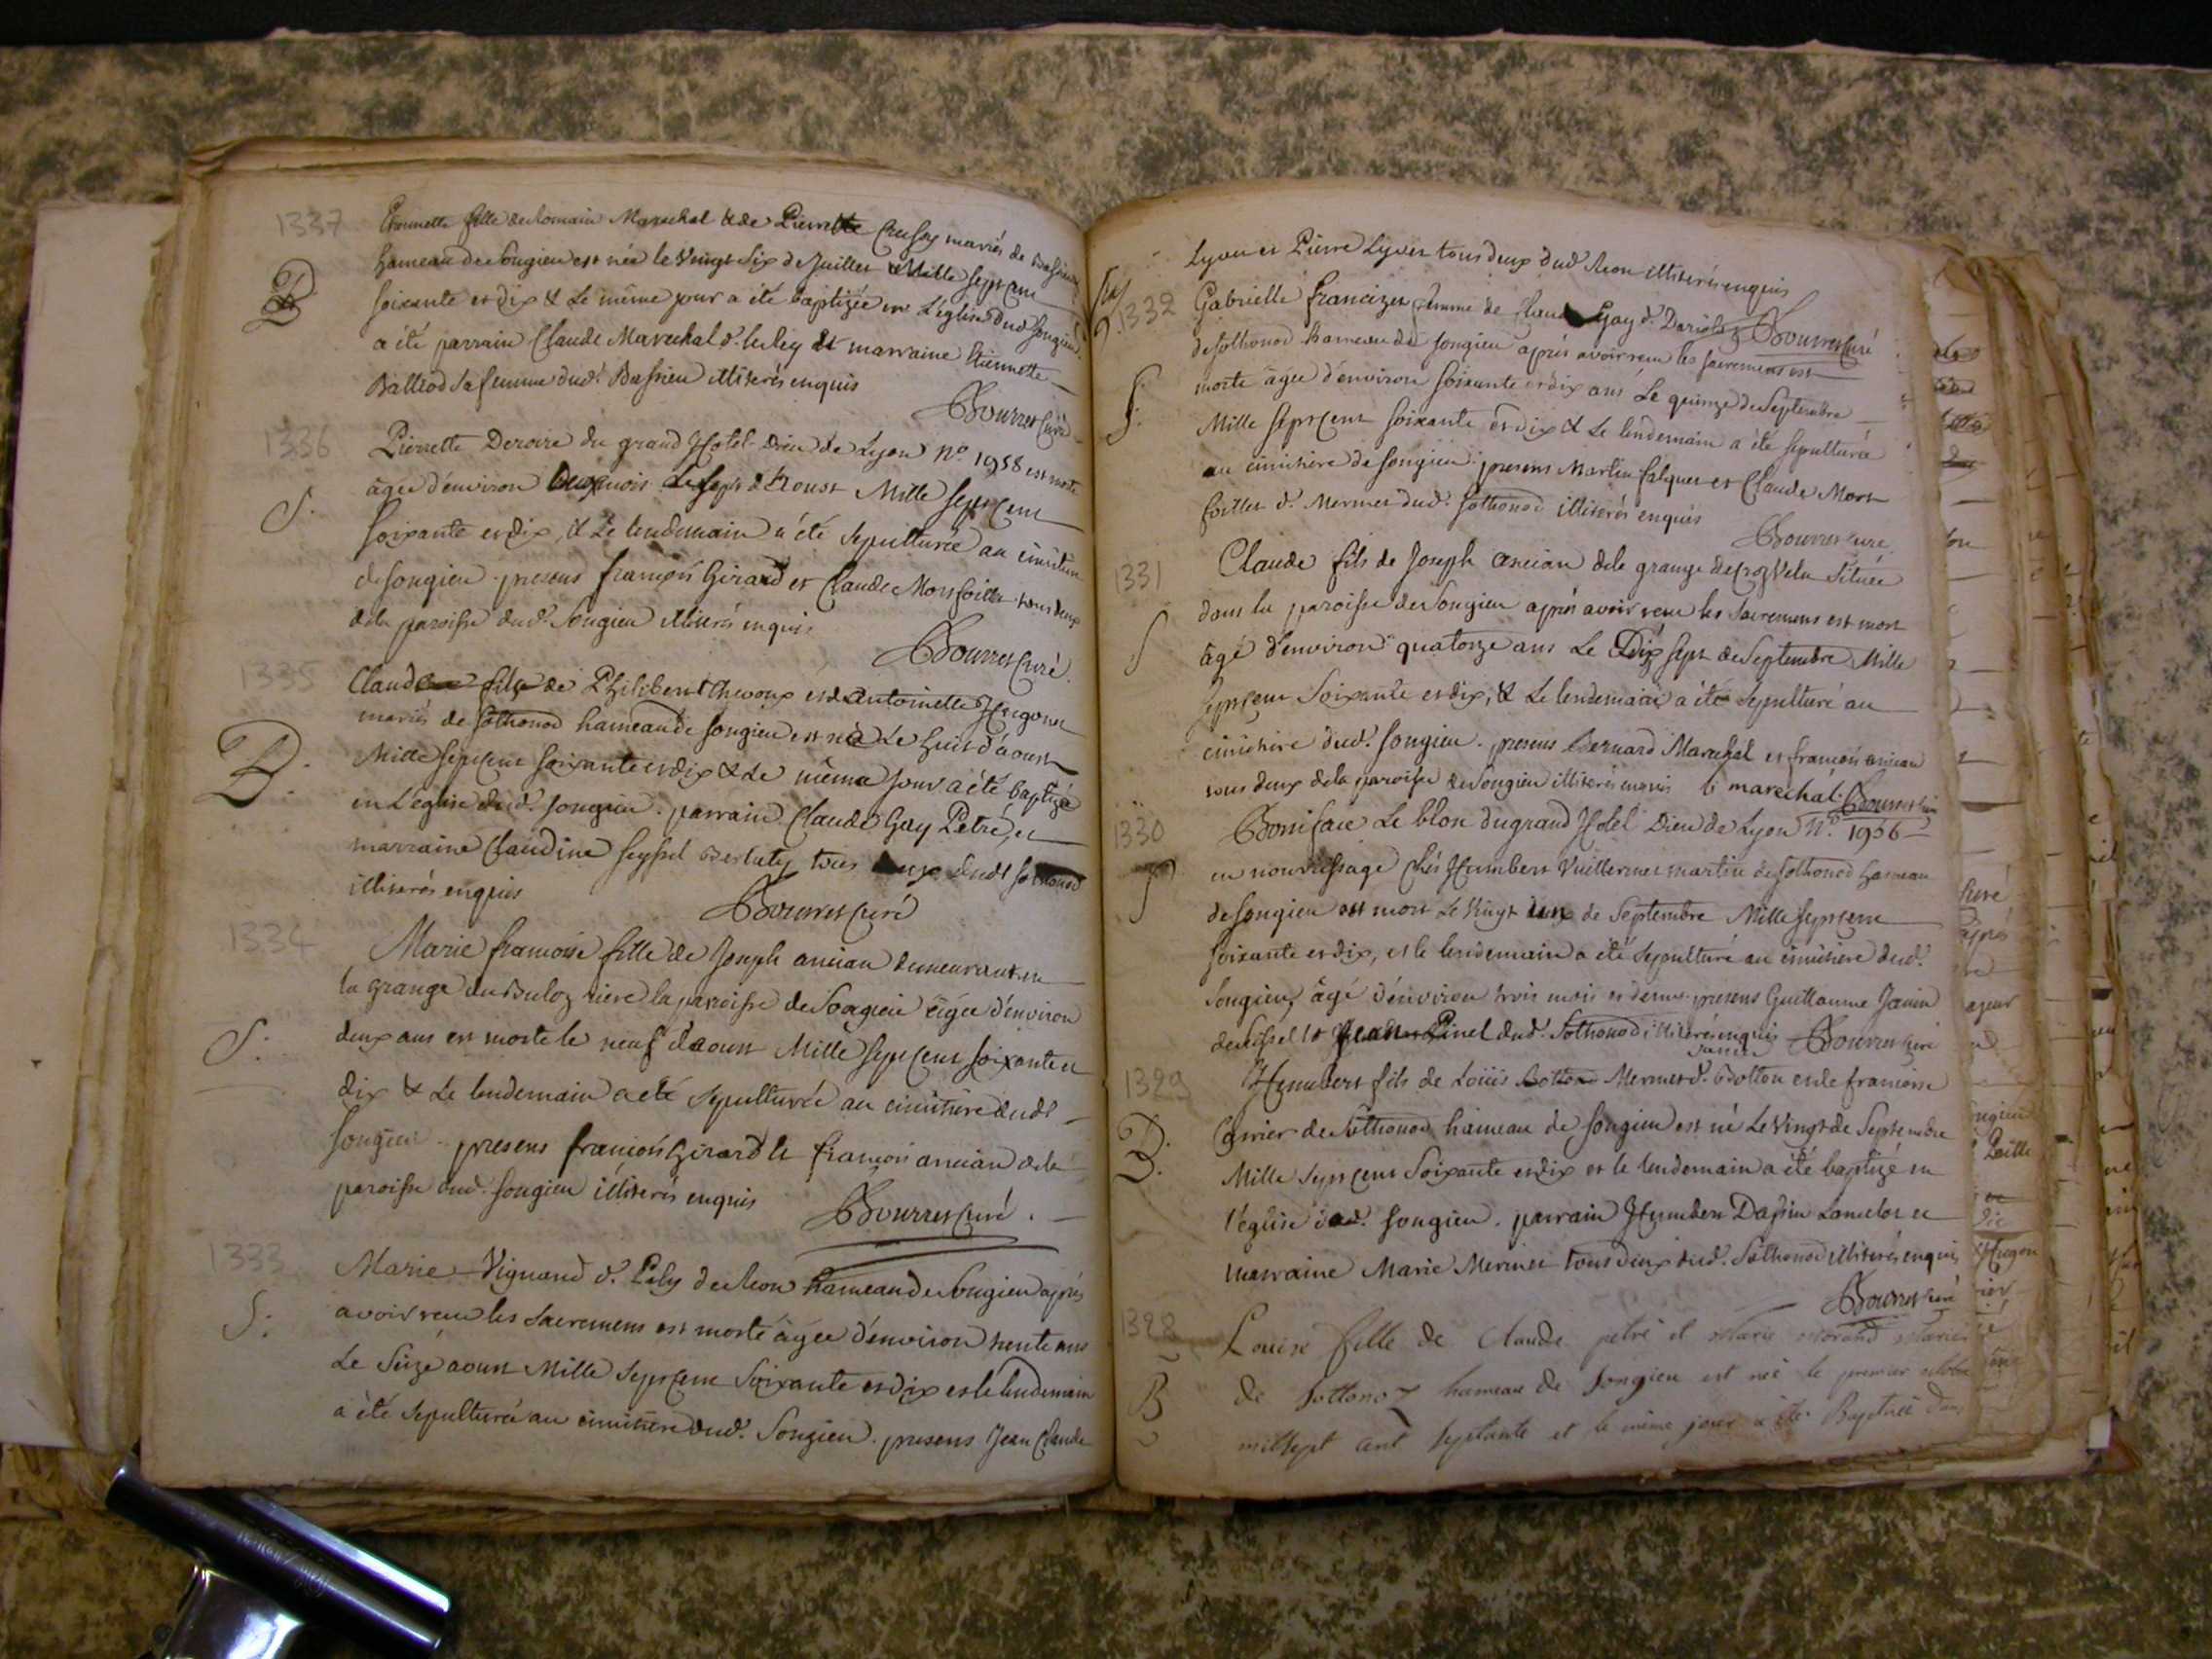 1337
fille de Romain Marechal & de Pierrette mariés de
hameau de Songieu est née le Vingt Six de Juillet Mille Sept cent
B
soixante et dix & Le même jour a été baptizée en L'église dud. Songieu.
a été parrain Claude Marechal d. et marraine Etiennette
Balleod sa femme dud. Bassieu illiterés enquis
Bourret Curé
1336
Pierrette Deroire du grand Hotel-Dieu de Lyon N.o 1958 est morte
âgée d'environ mois Le Sept d'Aoust Mille Sept cent
S.
Soixante et dix, & Le lendemain a été Sepulturée au cimitiere
de Songieu. presens françois Girard et Claude Monfoiller tous deux
de la paroisse dud. Songieu illiterés enquis
Bourret Curé.
1335
Claude fils de Philibert Chevoux et de antoinette Hugonet
mariés de Sothonod hameau de Songieu est né Le huit d'aoust
B.
Mille Sept cent Soixante et dix & Le même jour a été baptizé
en L'église dud. Songieu. parrain Claude Gay Petré, et
marraine Claudine Seyssel tous deux dudt Sothonod
illiterés enquis
Bourret Curé
1334
Marie françoise fille de Joseph ancian demeurant en
la grange du Buloz riere la paroisse de Songieu âgée d'environ
S.
deux ans est morte le neuf d'aoust Mille Sept Cent soixante et
dix & Le lendemain a eté Sepulturée au cimitiere dudt
Songieu. presens françois Girard & françois ancian de la
paroisse dud. Songieu illiterés enquis
Bourret Curé.
1333
Marie Vignand d. Paly de hameau de Songieu après
S.
avoir reçu les Sacremens est morte âgée d'environ trente ans
Le Seize aoust Mille Sept Cent Soixante et dix et le lendemain
a été Sepulturée au cimitiere dud. Songieu. presens Jean Claude
Lyvet et Pierre Lyvet tous deux dud. illiterés enquis
Bourret Curé
1332
Gabrielle francizet femme de Claude Gay d.
de Sothonod hameau de Songieu après avoir reçu les sacremens est
S.
morte âgée d'environ Soixante et dix ans Le quinze de Septembre
Mille Sept Cent Soixante et dix & Le lendemain a été Sepulturée
au cimitiere de Songieu. presens Martin falquet et Claude Mon
foiller d. Mermet dud. Sothonod illiterés enquis
Bourret Curé.
1331
Claude fils de Joseph ancian de la grange de Située
dans la paroisse de Songieu après avoir reçu les Sacremens est mort
S
âgé d'environ quatorze ans Le Dix Sept de Septembre Mille
Sept cent Soixante et dix, & Le lendemain a été Sepulturé au
cimitiere dud. Songieu. presens Bernard Marechal et françois ancian
tous deux de la paroisse de Songieu illiterés enquis b marechal. Bourret Curé
1330
Boniface Le blon du grand Hotel Dieu de Lyon N.o 1956
S
en nourrissage Chés Humbert Vuillermet martin de Sothonod hameau
de Songieu est mort Le Vingt un de Septembre Mille Sept cent
soixante et dix, et le lendemain a été Sepulturé au cimitiere dud.
Songieu, âgé d'environ trois mois et demi. presens Guillaume Janin
de et Pinel dud. Sothonod illiterés enquis Bourret Curé
1329
Humbert fils de Loüis Mermet d. Botton et de françoise
B.
de Sothonod hameau de Songieu est né Le Vingt de Septembre
Mille Sept Cent Soixante et dix et le lendemain a été baptizé en
l'église dud. Songieu. parrain Humbert Dapin et
marraine Marie Mermet tous deux dud. Sothonod illiterés enquis
Bourret Curé
1328
Louise fille de Claude petré et Marie Morand Mariés
B
de Sottonoz hameau de Songieu est née le premier octobre
mil sept cent septante et le même jour a été Baptisée dans